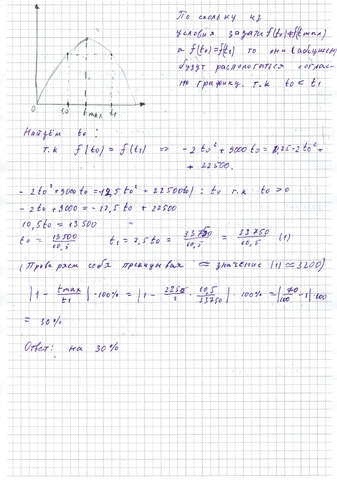 По скольку из
условия задачи f(t₀) ≠ f(tmax)
а f(t₀)=f(t₁) то они (абсциссы)
будут располагаться соглас-
но графику. т.к t₀ < t₁
0 t₀ t max t₁
Найдём t₀ :
т.к f(t₀) = f(t₁) => -2t₀² + 9000t₀ = -12,5·2t₀² +
+ 22500.
-2t₀² + 9000t₀ = -12,5t₀² - 22500t₀ | : t₀ т.к t₀ > 0
-2t₀ + 9000 = -12,5t₀ + 22500
10,5t₀ = 13500
t₀ = 13500/10,5 t₁ = 2,5t₀ = 33750/10,5 = 33750/10,5 (1)
(Проверяем себя ≈ значение (1) ≈ 3200)
|1 - tmax/t₁| · 100% = |1 - 2250/1 · 10,5/33750| · 100% = |70/100 - 1| · 100
= 30%
Ответ: на 30%